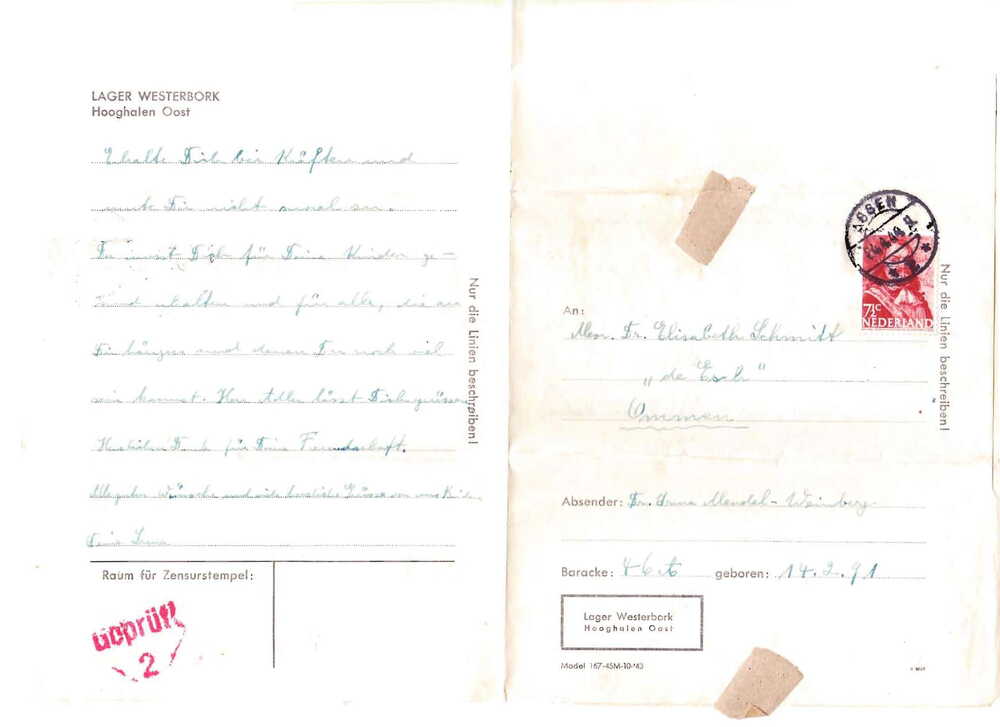 LAGER WESTERBORK
Hooghalen Oost
Erhalte Dich bei Kräften und
Dir nicht
Du musst Dich für Deine Kinder ge-
sund erhalten und für alle, die an
Dir hängen und denen Du noch viel
sein kannst. Herr Adler lässt Dich grüssen
Herzlichen Dank für Deine Freundschaft.
Alle guten Wünsche und viele herzliche Grüsse von uns Beiden
Deine
Nur die Linien beschreiben!
Raum für Zensurstempel:
Geprüft
2
ASSEN
7½c
NEDERLAND
An:
Mevr. Dr. Elisabeth Schmitt
„de Esch"
Ommen
Nur die Linien beschreiben!
Absender: Dr. Mendel-Weinberg
Baracke: 46 geboren: 14.2.91
Lager Westerbork
Hooghalen Oost
Model 167-45M-10-'43